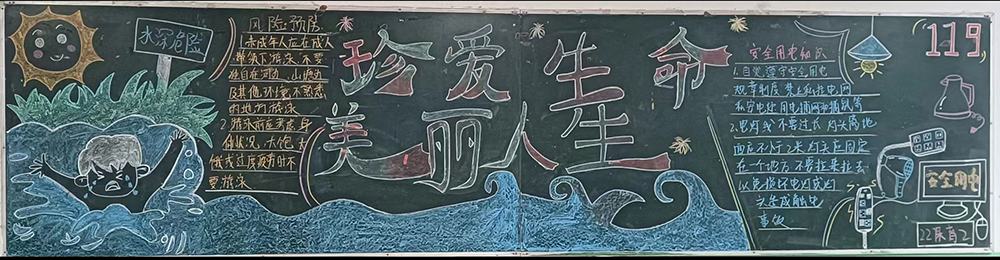 水深危险
风险预防
1.未成年人应在成人
带领下游泳,不要
独自在河边、山塘边
及其他环境不熟悉
的地方游泳
2.游泳前应考虑身
体状况,太饱、太
饿或过度疲劳时不
要游泳
珍爱生命
美丽人生
安全用电知识
1.自觉遵守安全用电
规章制度禁止私拉电网
私安电炉用电捕鱼
2.电灯线不要过长灯头离地
面应不小于2米灯头应固定
在一个地方不要拉来拉去
以免损坏电灯或灯
头造成触电
事故
119
安全用电